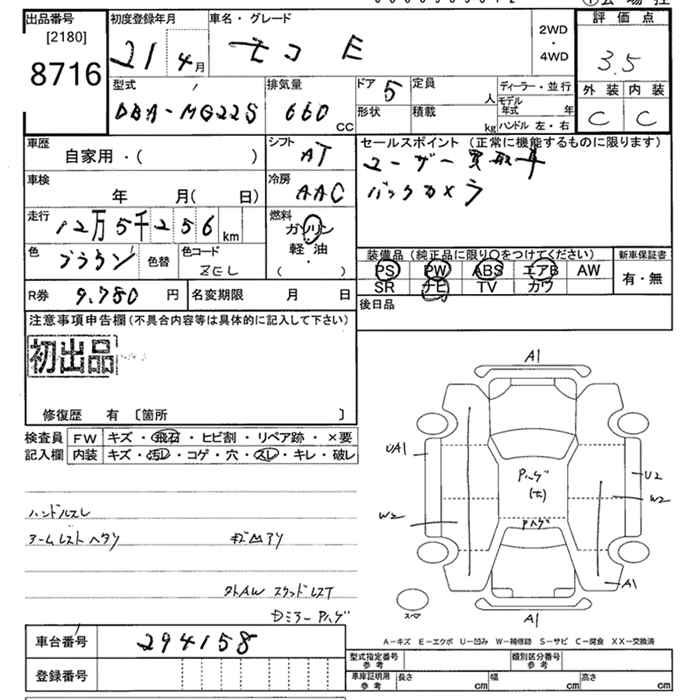 出品番号 初度登録年月 車名・グレード 2WD 評価点
[2180] 21 4月 モコ E ・ 3.5
8716 4WD 外装 内装
型式 排気量 ドア 定員 ディーラー・並行 C C
DBA-MG22S 660 CC 5 人 モデル年式 年
形状 積載 kg ハンドル 左・右
車歴 シフト セールスポイント (正常に機能するものに限ります)
自家用・( ) AT ユーザー買取車
車検 冷房 バックカメラ
年 月( 日) AAC
走行 燃料
12万5千256 km ガソリン
色 色替 色コード 軽・油
ブラウン ZEL ( )
装備品 (純正品に限り○をつけてください) 新車保証書
PS PW ABS エアB AW 有・無
SR ナビ TV カワ
R券 9.780 円 名変期限 月 日 後日品
注意事項申告欄(不具合内容等は具体的に記入して下さい)
初出品
修復歴 有 〔箇所 〕
検査員 FW キズ・飛石・ヒビ割・リペア跡・×要
記入欄 内装 キズ・汚レ・コゲ・穴・スレ・キレ・破レ
ハンドルスレ
アームレストヘタリ
外AW スタッドレスT
DミラーPハゲ
A1
UA1 U2
Pハゲ
W2 W2
Pハゲ
A1
スペア A1
A-キズ E-エクボ U-凹み W-補修跡 S-サビ C-腐食 XX-交換済
車台番号 294158
登録番号
型式指定番号 参考 類別区分番号 参考
車庫証明用 参考 長さ cm 幅 cm 高さ cm